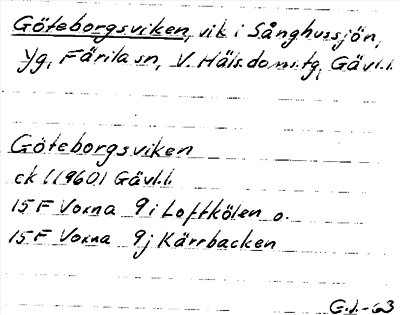 Göteborgsviken, vik i Sånghussjön,
Yg, Färila sn, V. Häls. doms.tg, Gävl.l.
Göteborgsviken
ek (1960) Gävl.l.
15F Voxna 9i Loftkölen o.
15F Voxna 9j Kärrbacken
G.J.-63